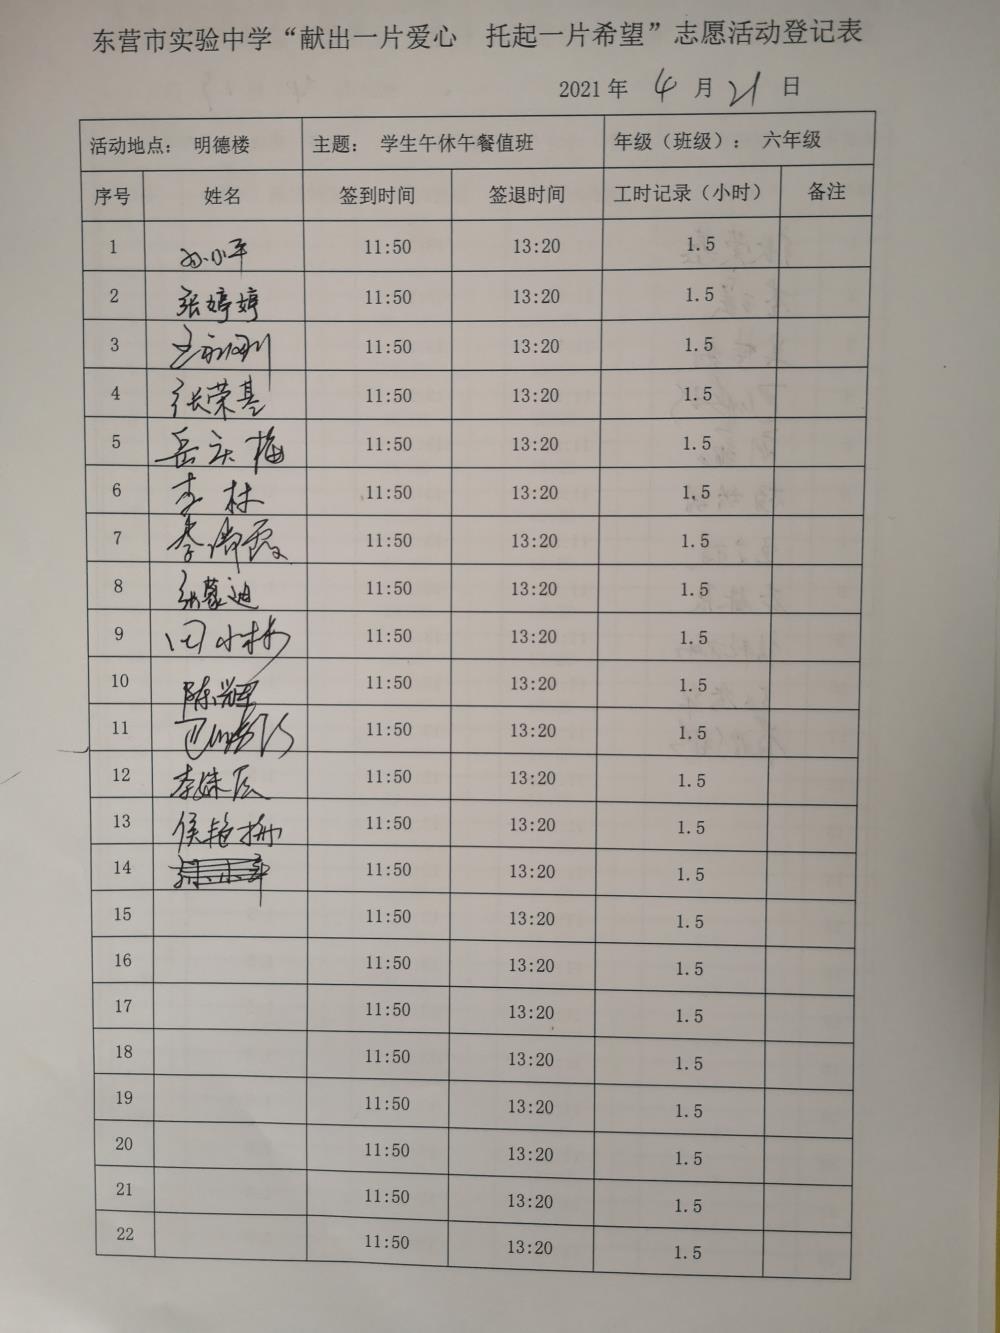 东营市实验中学“献出一片爱心 托起一片希望”志愿活动登记表
2021 年 4 月 21 日
活动地点： 明德楼 主题： 学生午休午餐值班 年级（班级）： 六年级
序号 姓名 签到时间 签退时间 工时记录（小时） 备注
1 孙小平 11:50 13:20 1.5
2 张婷婷 11:50 13:20 1.5
3 11:50 13:20 1.5
4 张荣基 11:50 13:20 1.5
5 岳庆梅 11:50 13:20 1.5
6 李林 11:50 13:20 1.5
7 李 霞 11:50 13:20 1.5
8 张蒙迪 11:50 13:20 1.5
9 田小梅 11:50 13:20 1.5
10 陈 11:50 13:20 1.5
11 11:50 13:20 1.5
12 李姝辰 11:50 13:20 1.5
13 侯艳梅 11:50 13:20 1.5
14 孙小平 11:50 13:20 1.5
15 11:50 13:20 1.5
16 11:50 13:20 1.5
17 11:50 13:20 1.5
18 11:50 13:20 1.5
19 11:50 13:20 1.5
20 11:50 13:20 1.5
21 11:50 13:20 1.5
22 11:50 13:20 1.5